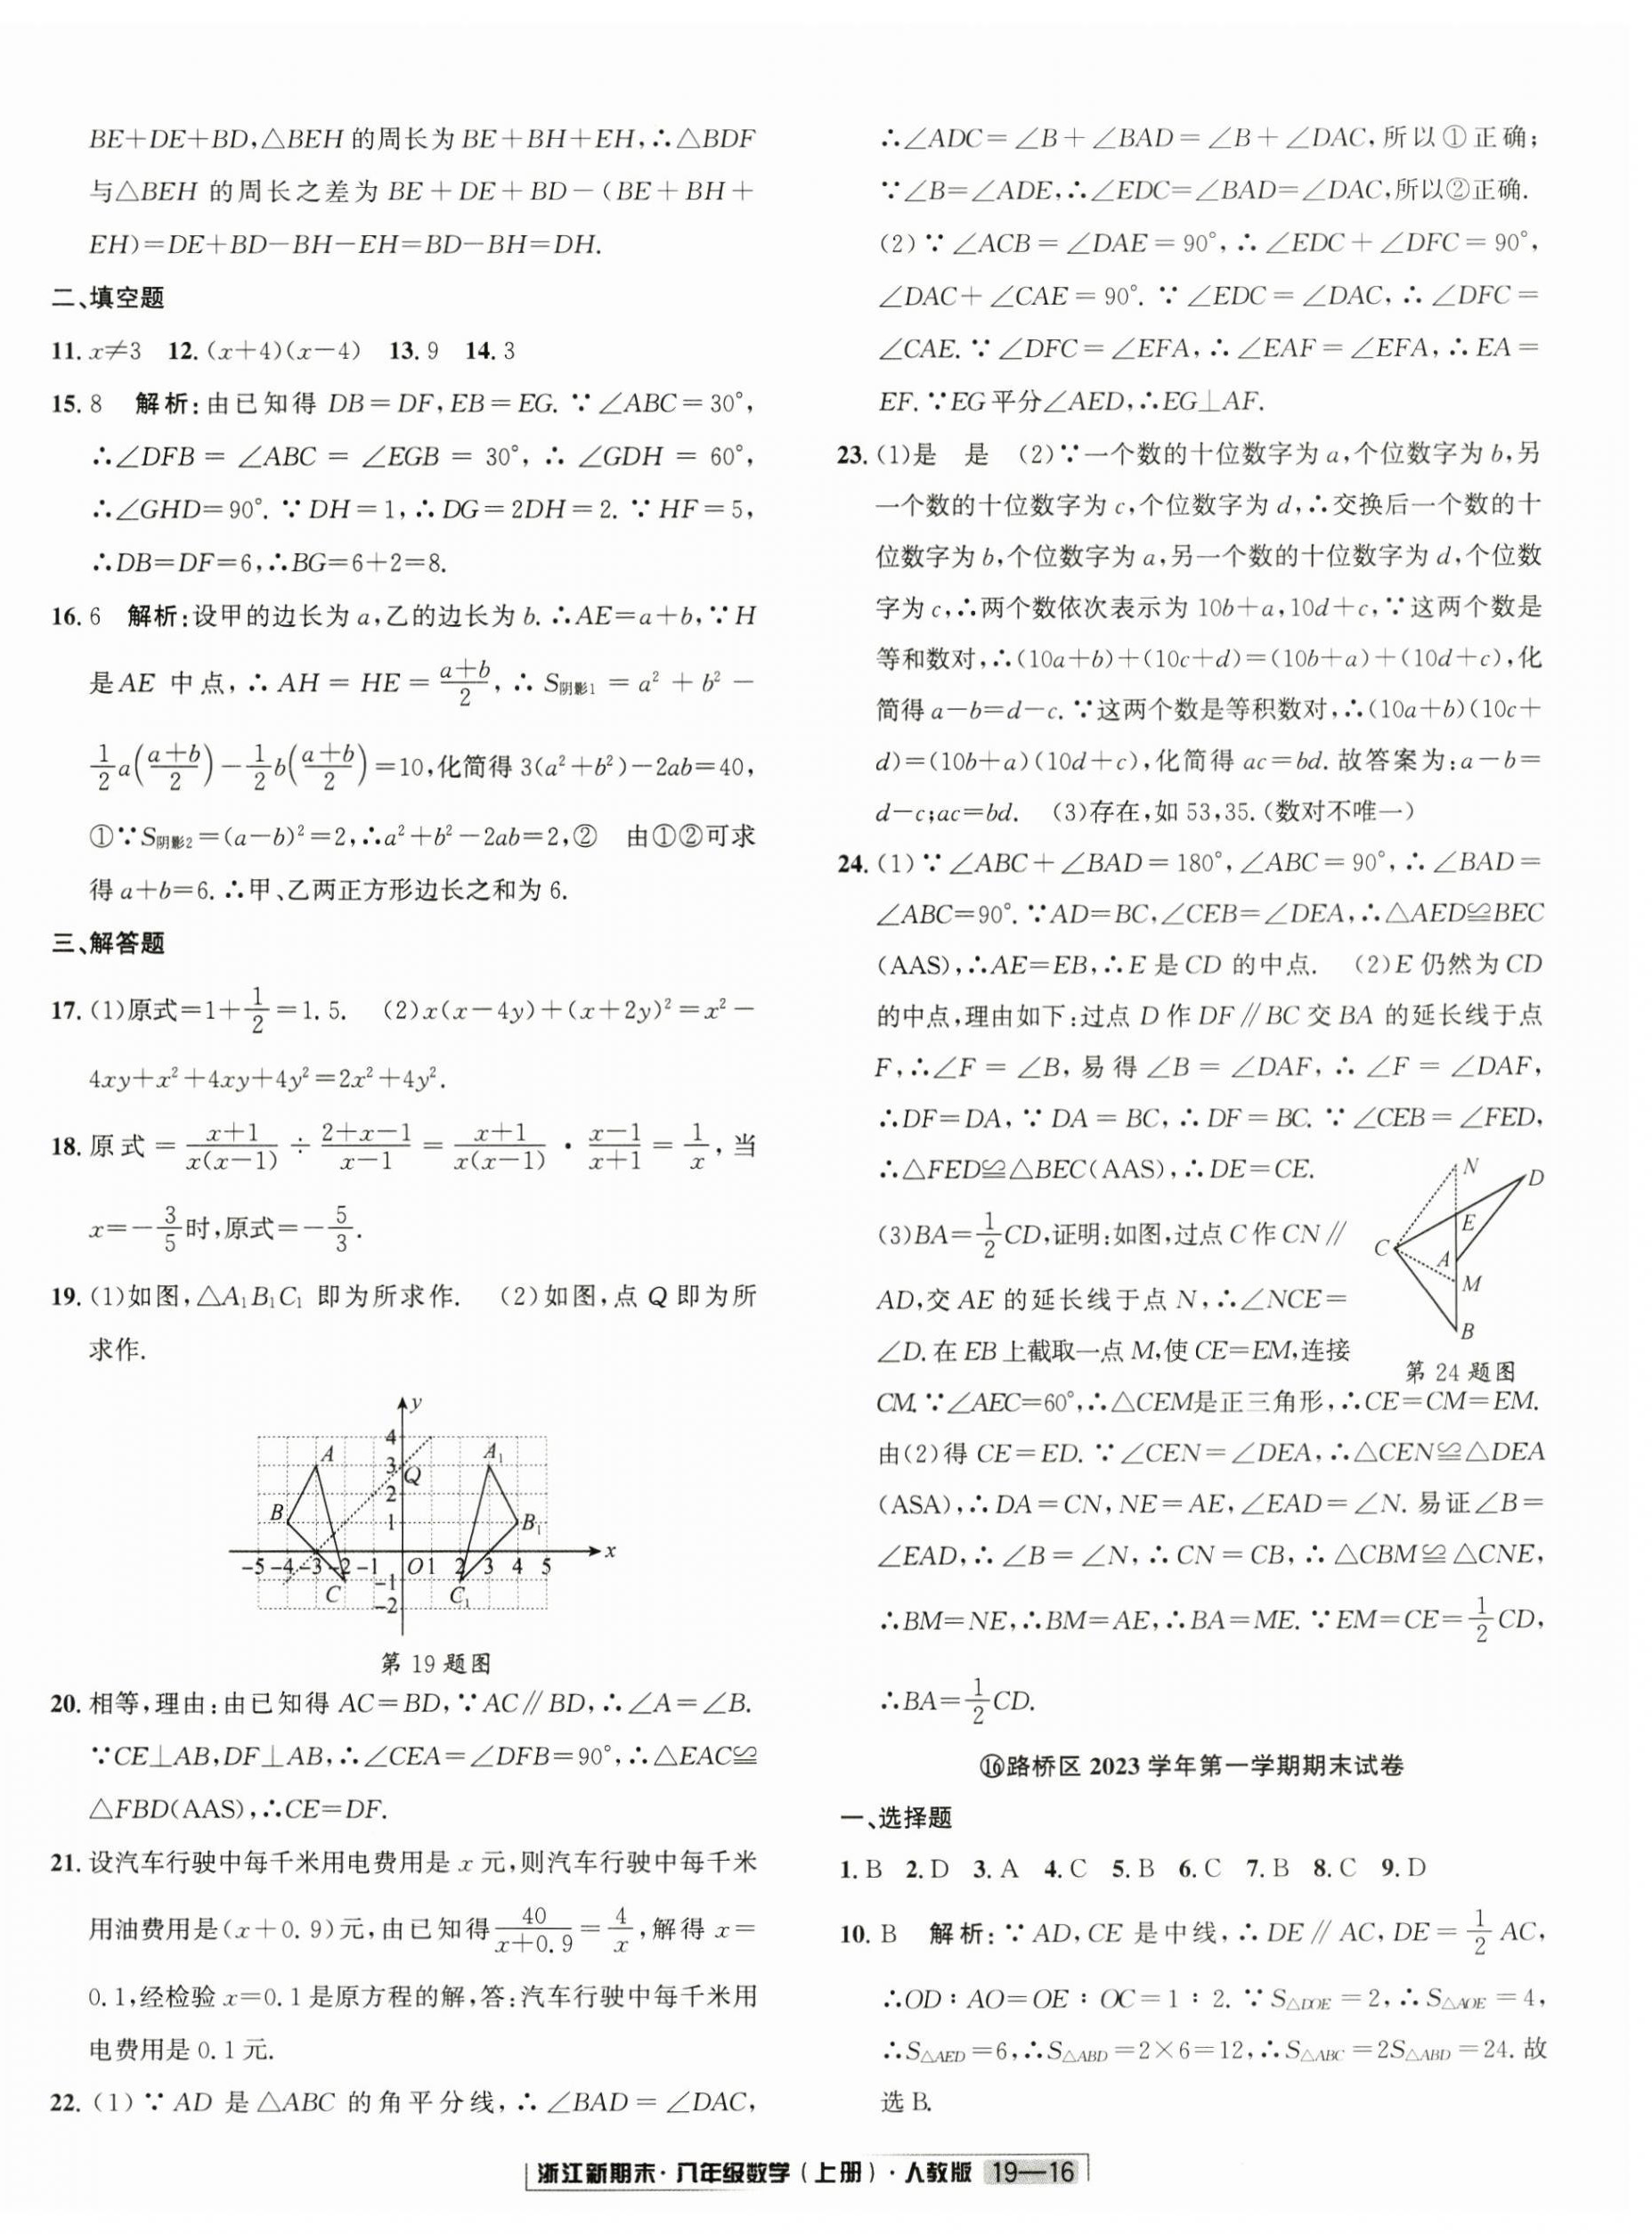 BE+DE+BD,△BEH 的周长为 BE+BH+EH,∴△BDF
与△BEH 的周长之差为 BE+DE+BD-(BE+BH+
EH)=DE+BD-BH-EH=BD-BH=DH.
二、填空题
11. x≠3 12. (x+4)(x-4) 13. 9 14. 3
15. 8 解析:由已知得 DB=DF,EB=EG. ∵∠ABC=30°,
∴∠DFB=∠ABC=∠EGB=30°,∴∠GDH=60°,
∴∠GHD=90°. ∵DH=1,∴DG=2DH=2. ∵HF=5,
∴DB=DF=6,∴BG=6+2=8.
16. 6 解析:设甲的边长为 a,乙的边长为 b. ∴AE=a+b,∵H
是 AE 中点,∴AH=HE=\frac{a+b}{2},∴S阴影1=a²+b²-
\frac{1}{2}a(\frac{a+b}{2})-\frac{1}{2}b(\frac{a+b}{2})=10,化简得 3(a²+b²)-2ab=40,
①∵S阴影2=(a-b)²=2,∴a²+b²-2ab=2,② 由①②可求
得 a+b=6. ∴甲、乙两正方形边长之和为 6.
三、解答题
17. (1)原式=1+\frac{1}{2}=1.5. (2)x(x-4y)+(x+2y)²=x²-
4xy+x²+4xy+4y²=2x²+4y².
18. 原式=\frac{x+1}{x(x-1)}÷\frac{2+x-1}{x-1}=\frac{x+1}{x(x-1)}·\frac{x-1}{x+1}=\frac{1}{x},当
x=-\frac{3}{5}时,原式=-\frac{5}{3}.
19. (1)如图,△A₁B₁C₁ 即为所求作. (2)如图,点 Q 即为所
求作.
y
4
A A₁
3 Q
2
B 1 B₁
-5 -4 -3 -2 -1 O 1 2 3 4 5 x
C -1 C₁
-2
第 19 题图
20. 相等,理由:由已知得 AC=BD,∵AC∥BD,∴∠A=∠B.
∵CE⊥AB,DF⊥AB,∴∠CEA=∠DFB=90°,∴△EAC≌
△FBD(AAS),∴CE=DF.
21. 设汽车行驶中每千米用电费用是 x 元,则汽车行驶中每千米
用油费用是(x+0.9)元,由已知得\frac{40}{x+0.9}=\frac{4}{x},解得 x=
0.1,经检验 x=0.1 是原方程的解,答:汽车行驶中每千米用
电费用是 0.1 元.
22. (1)∵AD 是△ABC 的角平分线,∴∠BAD=∠DAC,
∴∠ADC=∠B+∠BAD=∠B+∠DAC,所以①正确;
∵∠B=∠ADE,∴∠EDC=∠BAD=∠DAC,所以②正确.
(2)∵∠ACB=∠DAE=90°,∴∠EDC+∠DFC=90°,
∠DAC+∠CAE=90°. ∵∠EDC=∠DAC,∴∠DFC=
∠CAE. ∵∠DFC=∠EFA,∴∠EAF=∠EFA,∴EA=
EF. ∵EG平分∠AED,∴EG⊥AF.
23. (1)是 是 (2)∵一个数的十位数字为 a,个位数字为 b,另
一个数的十位数字为 c,个位数字为 d,∴交换后一个数的十
位数字为 b,个位数字为 a,另一个数的十位数字为 d,个位数
字为 c,∴两个数依次表示为 10b+a,10d+c,∵这两个数是
等和数对,∴(10a+b)+(10c+d)=(10b+a)+(10d+c),化
简得 a-b=d-c. ∵这两个数是等积数对,∴(10a+b)(10c+
d)=(10b+a)(10d+c),化简得 ac=bd. 故答案为:a-b=
d-c;ac=bd. (3)存在,如 53,35.(数对不唯一)
24. (1)∵∠ABC+∠BAD=180°,∠ABC=90°,∴∠BAD=
∠ABC=90°. ∵AD=BC,∠CEB=∠DEA,∴△AED≌BEC
(AAS),∴AE=EB,∴E 是 CD 的中点. (2)E 仍然为 CD
的中点,理由如下:过点 D 作 DF∥BC 交 BA 的延长线于点
F,∴∠F=∠B,易得∠B=∠DAF,∴∠F=∠DAF,
∴DF=DA,∵DA=BC,∴DF=BC. ∵∠CEB=∠FED,
∴△FED≌△BEC(AAS),∴DE=CE.
(3)BA=\frac{1}{2}CD,证明:如图,过点 C 作 CN∥
AD,交 AE 的延长线于点 N,∴∠NCE=
∠D. 在 EB 上截取一点 M,使 CE=EM,连接
N
D
E
C
A
M
B
第 24 题图
CM. ∵∠AEC=60°,∴△CEM是正三角形,∴CE=CM=EM.
由(2)得 CE=ED. ∵∠CEN=∠DEA,∴△CEN≌△DEA
(ASA),∴DA=CN,NE=AE,∠EAD=∠N. 易证∠B=
∠EAD,∴∠B=∠N,∴CN=CB,∴△CBM≌△CNE,
∴BM=NE,∴BM=AE,∴BA=ME. ∵EM=CE=\frac{1}{2}CD,
∴BA=\frac{1}{2}CD.
⑯路桥区 2023 学年第一学期期末试卷
一、选择题
1. B 2. D 3. A 4. C 5. B 6. C 7. B 8. C 9. D
10. B 解析:∵AD,CE 是中线,∴DE∥AC,DE=\frac{1}{2}AC,
∴OD∶AO=OE∶OC=1∶2. ∵S△DOE=2,∴S△AOE=4,
∴S△AED=6,∴S△ABD=2×6=12,∴S△ABC=2S△ABD=24. 故
选 B.
浙江新期末·八年级数学(上册)·人教版 19—16